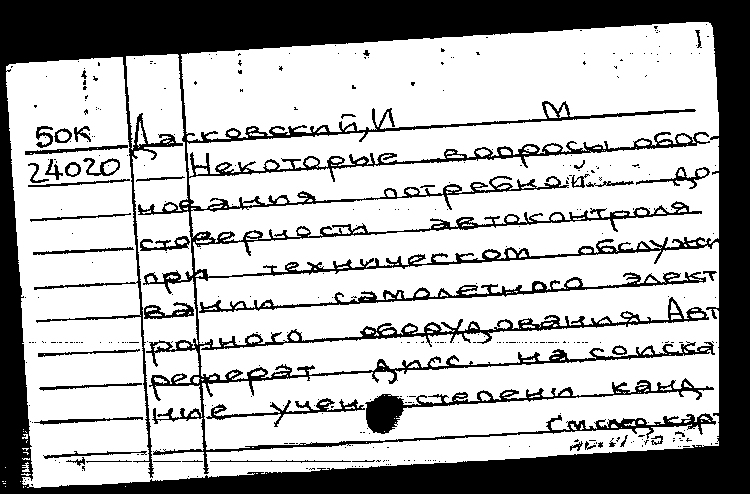 I
50К Дасковский, И М
24020 Некоторые вопросы обос-
нования потребной до-
стоверности автоконтроля
при техническом обслужи
вании самолетного элект
ронного оборудования. Авт
реферат дисс. на соиска
ние учен степени канд.
См. след. карт